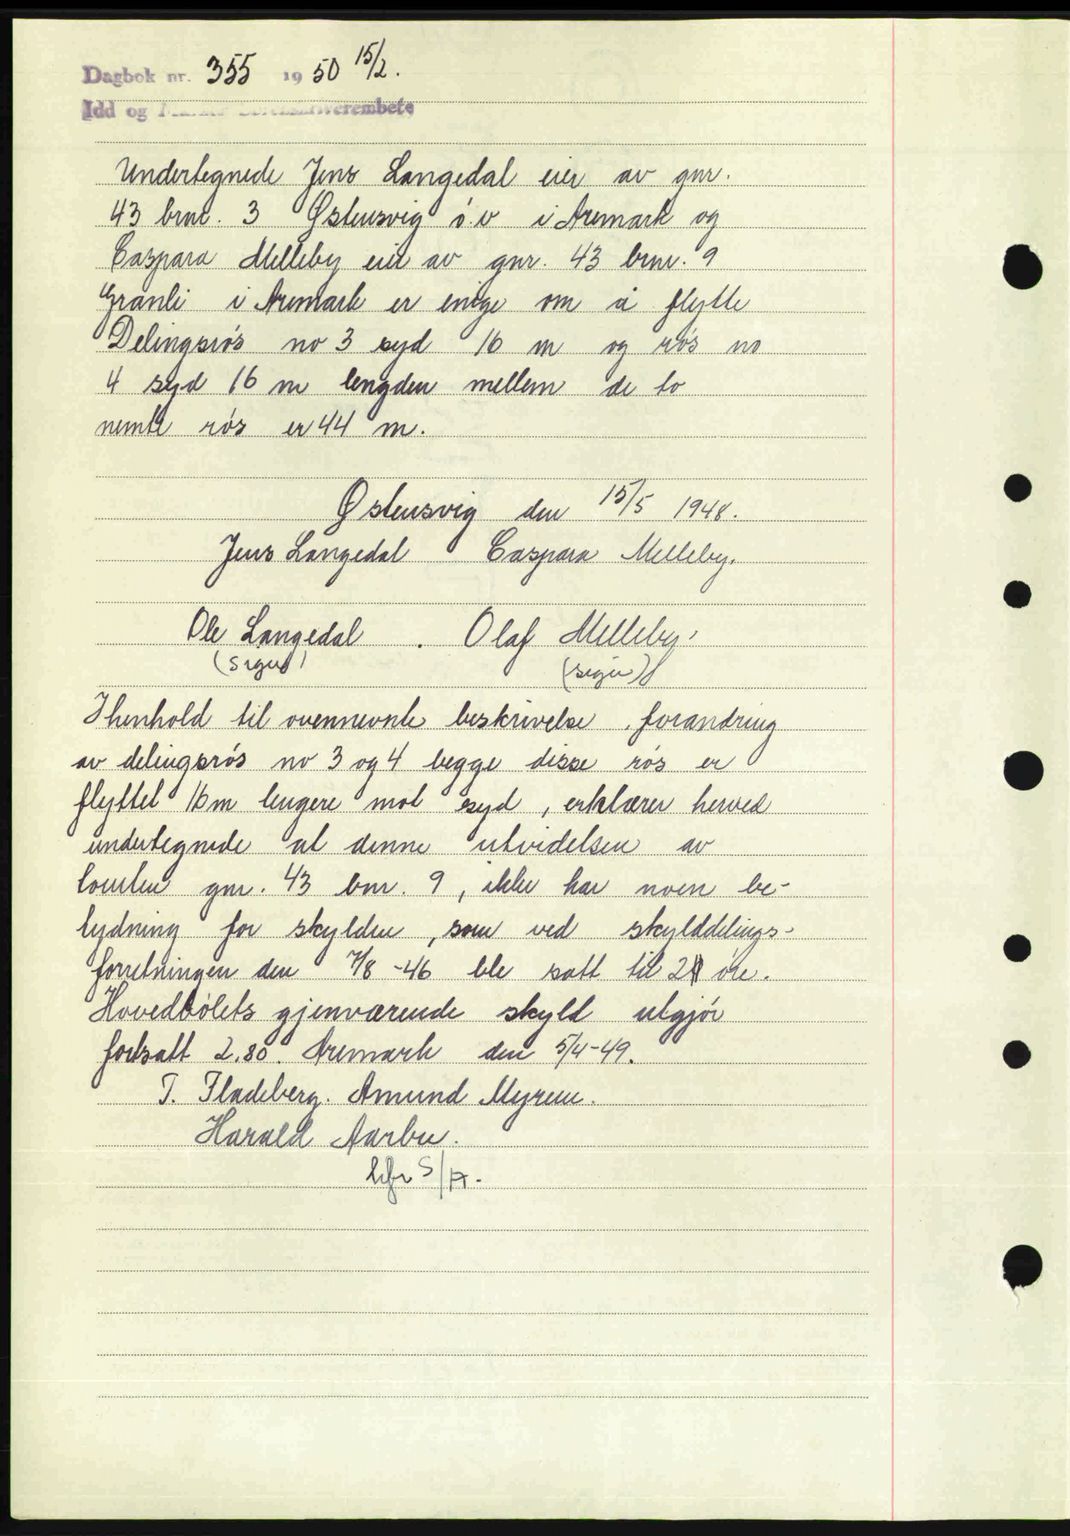 Dagbok nr. 355 1950 15/2.
Idd og Marker sorenskriverembete
Undertegnede Jens Langedal eier av gnr.
43 brnr. 3 Østensvig ö.v i Aremark og
Caspara Melleby eier av gnr. 43 brnr. 9
Granli i Aremark er enige om å flytte
Delingsrós no 3 syd 16 m og rós no
4 syd 16 m lengden mellem de to
nemte rós er 44 m.
Østensvig den 15/5 1948.
Jens Langedal Caspara Melleby.
Ole Langedal . Olaf Melleby
(sign) (sign)
I henhold til ovennevnte beskrivelse, forandring
av delingsrós no 3 og 4 begge disse rós er
flyttet 16m lengere mot syd, erklærer herved
undertegnede at denne utvidelsen av
tomten gnr. 43 bnr. 9, ikke har noen be-
tydning for skylden, som ved skylddelings-
forretningen den 7/8 -46 ble satt til 2 öre.
Hovedbólets gjenværende skyld utgjór
fortsatt 2.80. Aremark den 5/4-49.
T. Fladeberg. Amund Myren.
Harald Aarbu.
S/A.